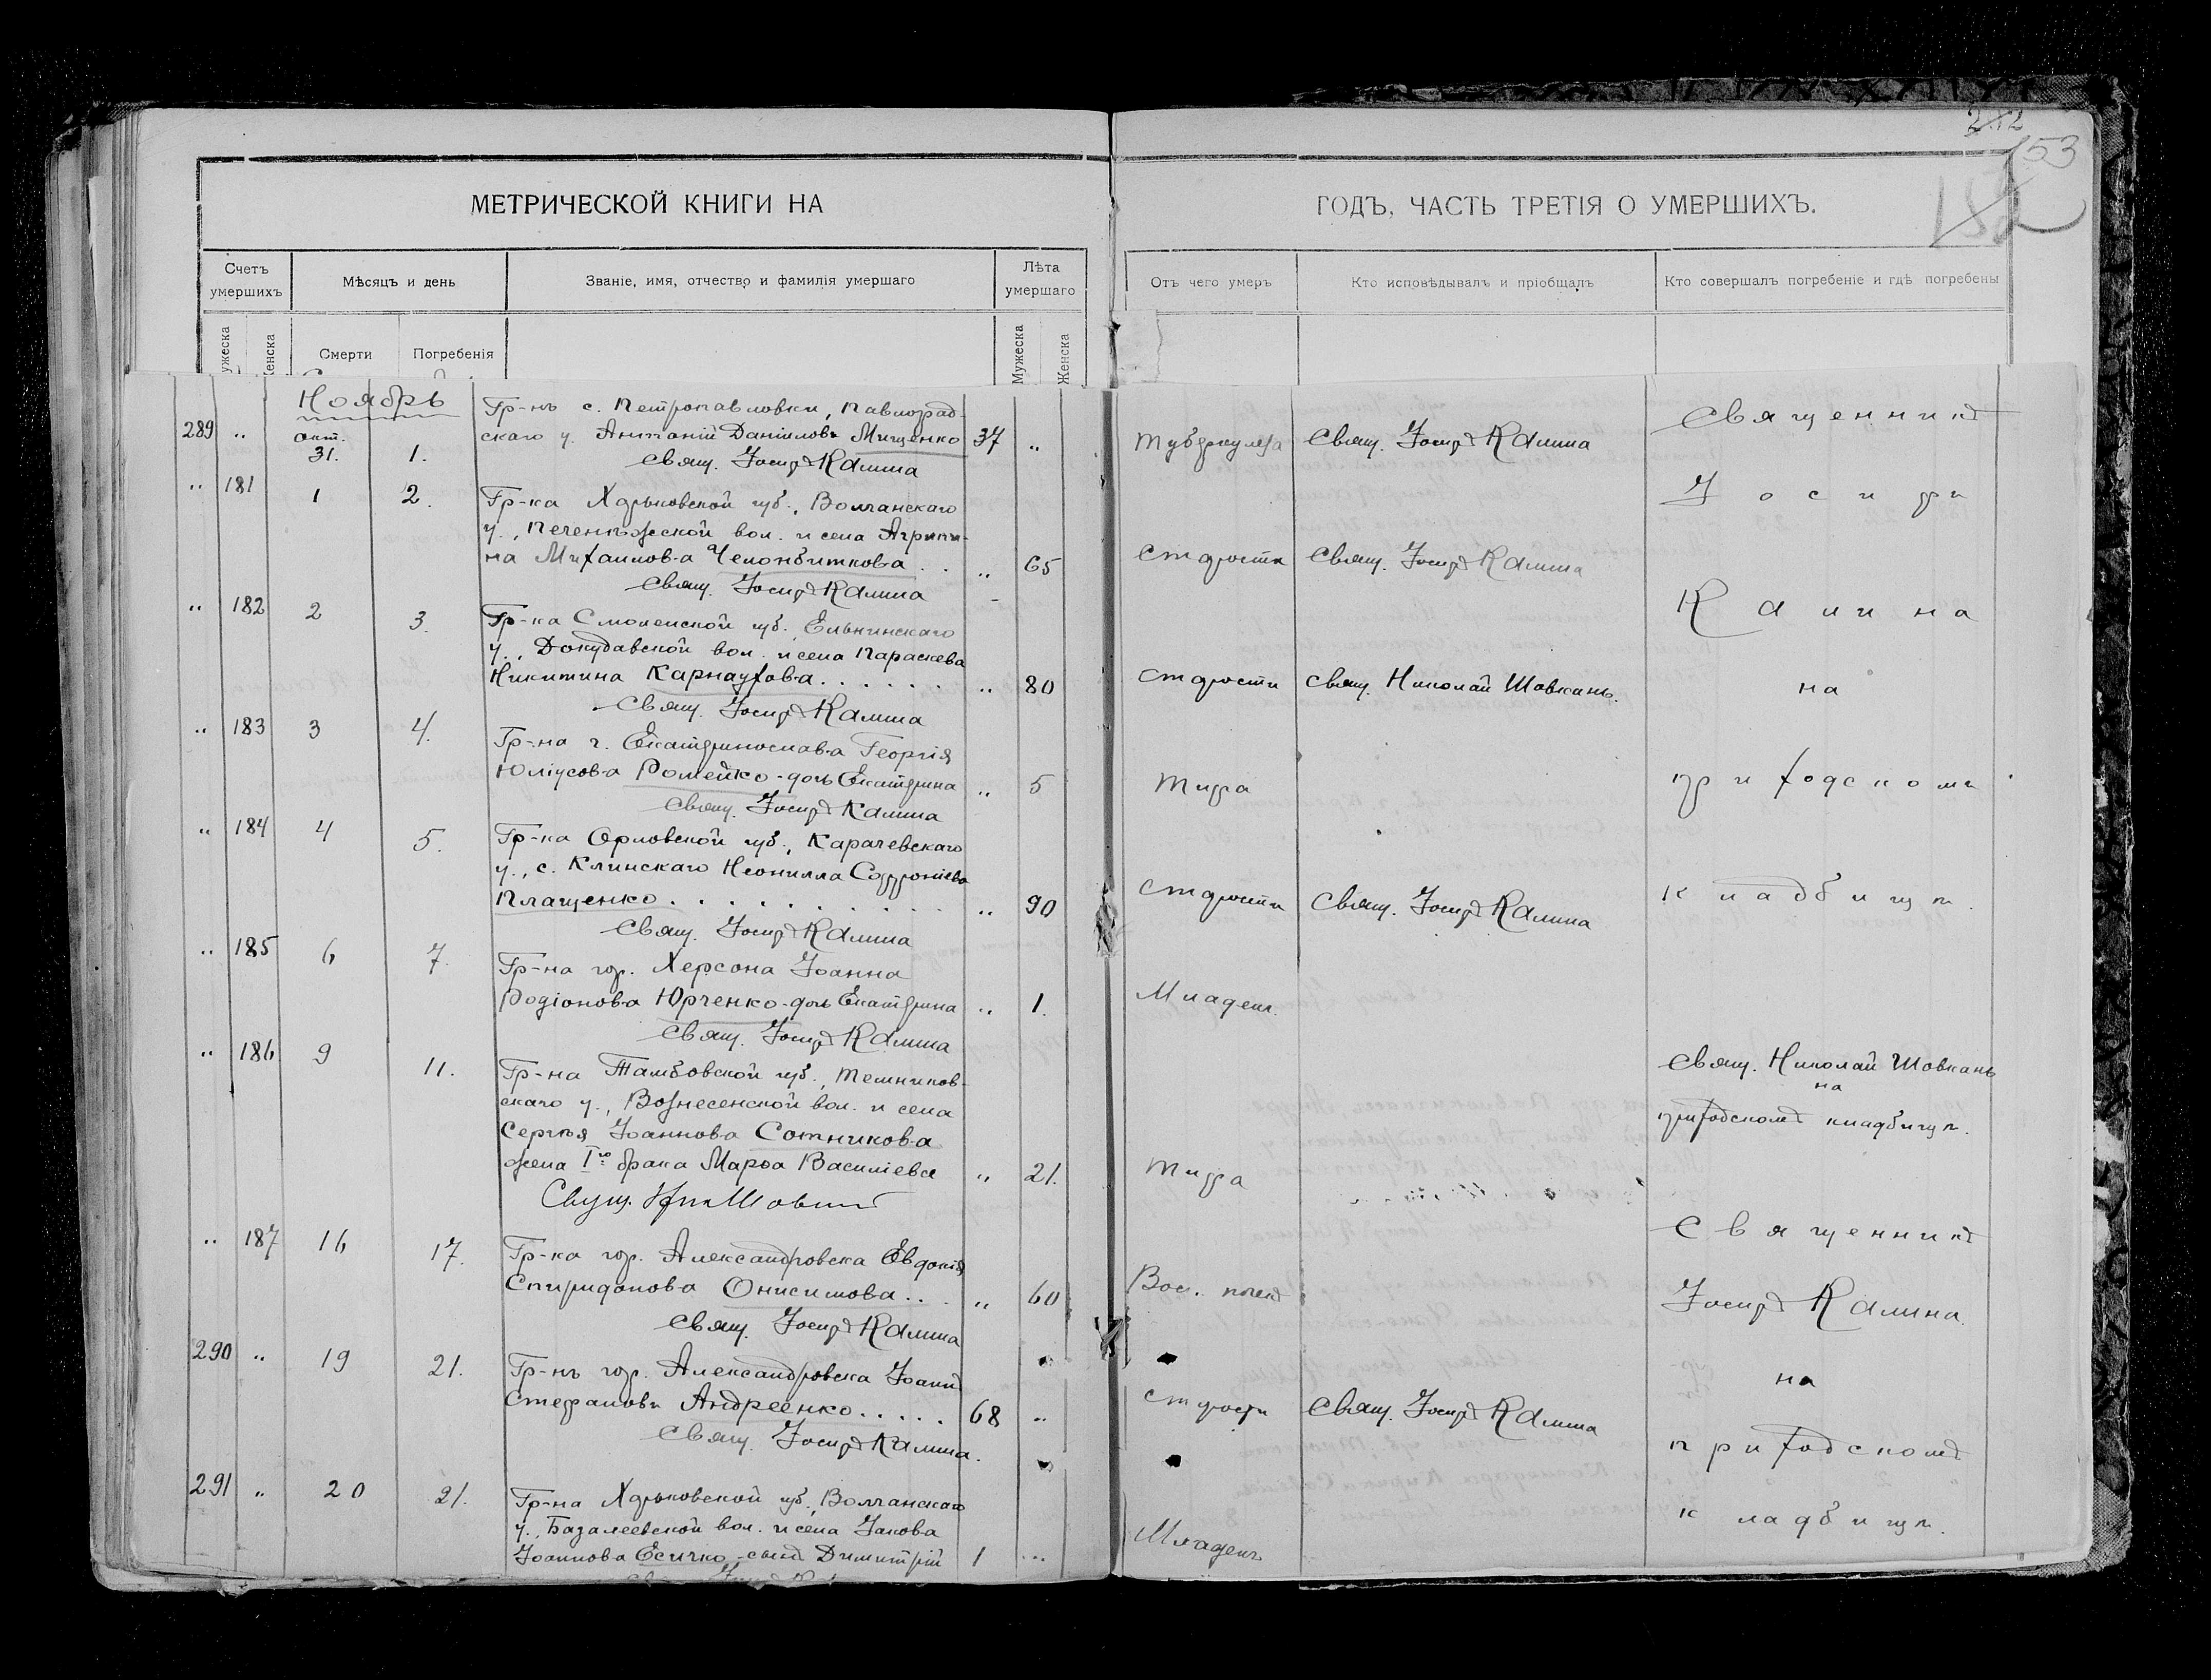 2.12
153
182
МЕТРИЧЕСКОЙ КНИГИ НА ГОДЪ, ЧАСТЬ ТРЕТІЯ О УМЕРШИХЪ.
Счетъ умершихъ
Мѣсяцъ и день
Званіе, имя, отчество и фамилія умершаго
Лѣта умершаго
Отъ чего умеръ
Кто исповѣдывалъ и пріобщалъ
Кто совершалъ погребеніе и гдѣ погребены
ужеска
енска
Смерти
Погребенія
Мужеска
Женска
Ноябрь
Гр-нъ с. Петропавловки, Павлоград-
289 " окт. 31. 1. скаго у. Антоній Даніиловъ Мищенко 37 " Туберкулеза Свящ. Іосифъ Калина Священникъ
Свящ. Іосифъ Калина
" 181 1 2. Гр-ка Харьковской губ., Волчанскаго Іосифъ
у., Печенѣжской вол. и села Агрипи-
на Михаилова Челомбиткова . . " 65 Старости Свящ. Іосифъ Калина
Свящ. Іосифъ Калина
" 182 2 3. Гр-ка Смоленской губ. Ельнинскаго Калина
у., Докудавской вол. и села Параскева
Никитина Карнаухова . . . . . . " 80 Старости Свящ. Николай Шовкань. на
Свящ. Іосифъ Калина
" 183 3 4. Гр-на г. Екатеринослава Георгія
Юліусова Ромейко-дочь Екатерина " 5 Тифа приходскомъ
Свящ. Іосифъ Калина
" 184 4 5. Гр-ка Орловской губ., Карачевскаго
у., с. Клинскаго Неонилла Софроніева
Плащенко . . . . . . . . . . " 90 Старости Свящ. Іосифъ Калина кладбищѣ.
Свящ. Іосифъ Калина
" 185 6 7. Гр-на гор. Херсона Іоанна
Родіонова Юрченко-дочь Екатерина " 1. Младенч.
Свящ. Іосифъ Калина
" 186 9 11. Гр-на Тамбовской губ., Темников- Свящ. Николай Шовкань
скаго у., Вознесенской вол. и села на
Сергѣя Іоаннова Сотникова приходскомъ кладбищѣ.
жена Iго брака Марѳа Василіева " 21. Тифа
Свящ. Ник Шовкань
" 187 16 17. Гр-ка гор. Александровска Евдокія Священникъ
Спиридонова Онисимова . . . " 60 Восп. почекъ Іосифъ Калина.
Свящ. Іосифъ Калина
290 " 19 21. Гр-нъ гор. Александровска Іоаннъ на
Стефановъ Андреенко . . . . . 68 " Старости Свящ. Іосифъ Калина
Свящ. Іосифъ Калина. приходскомъ
291 " 20 21. Гр-на Харьковской губ., Волчанскаго
у., Базалеевской вол. и села Іакова кладбищѣ.
Іоаннова Есичко-сынъ Димитрій 1 " Младенч.